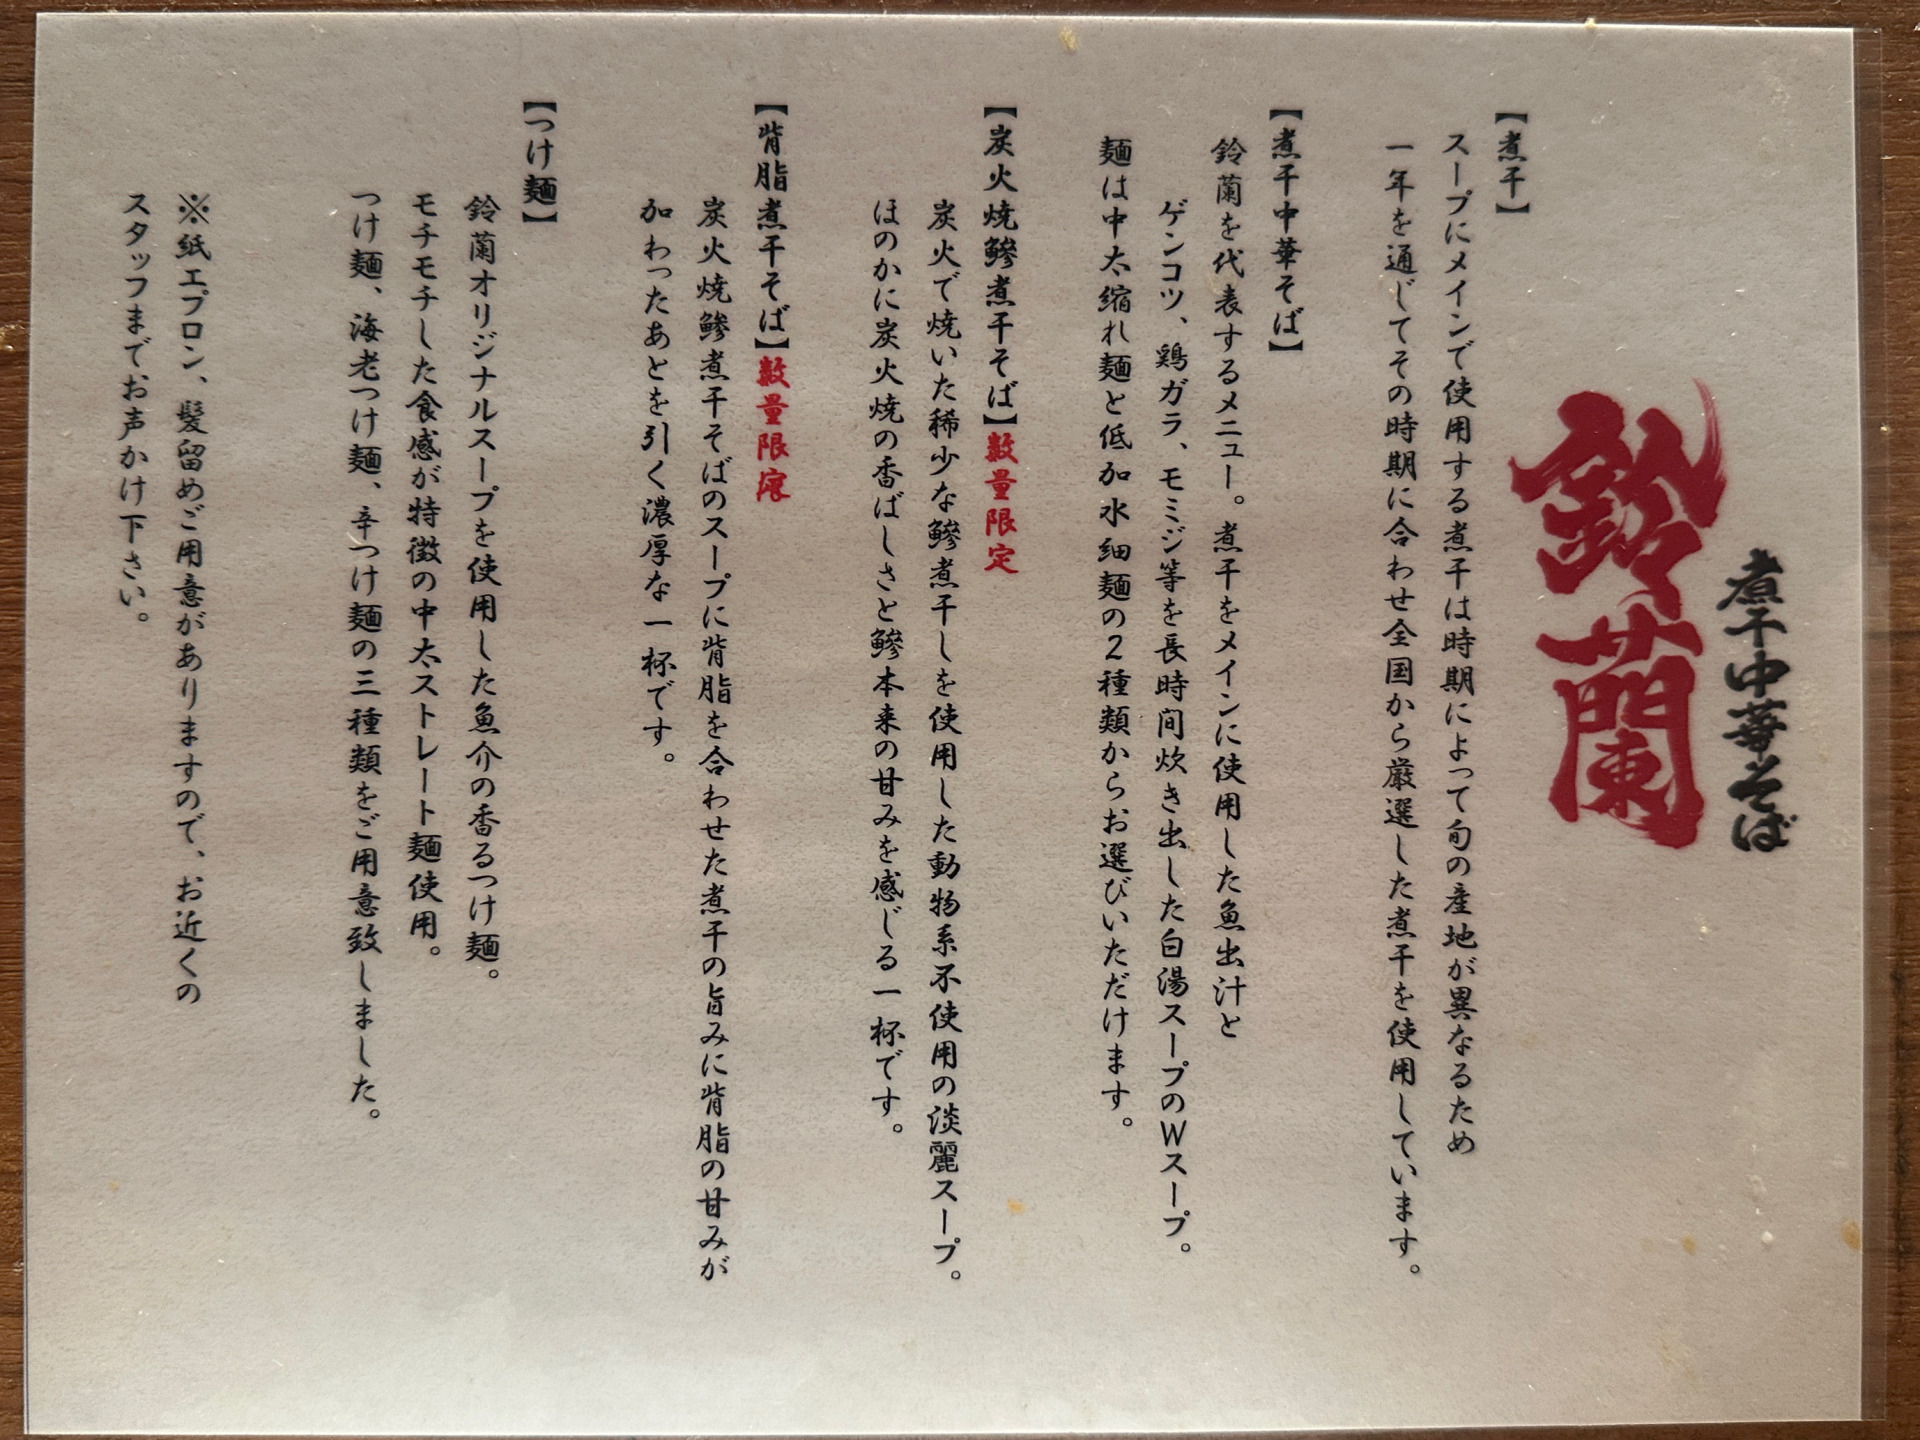 煮干中華そば
鈴蘭
【煮干】
スープにメインで使用する煮干は時期によって旬の産地が異なるため
一年を通じてその時期に合わせ全国から厳選した煮干を使用しています。
【煮干中華そば】
鈴蘭を代表するメニュー。煮干をメインに使用した魚出汁と
ゲンコツ、鶏ガラ、モミジ等を長時間炊き出した白湯スープのWスープ。
麺は中太縮れ麺と低加水細麺の2種類からお選びいただけます。
【炭火焼鯵煮干そば】数量限定
炭火で焼いた稀少な鯵煮干しを使用した動物系不使用の淡麗スープ。
ほのかに炭火焼の香ばしさと鯵本来の甘みを感じる一杯です。
【背脂煮干そば】数量限定
炭火焼鯵煮干そばのスープに背脂を合わせた煮干の旨みに背脂の甘みが
加わったあとを引く濃厚な一杯です。
【つけ麺】
鈴蘭オリジナルスープを使用した魚介の香るつけ麺。
モチモチした食感が特徴の中太ストレート麺使用。
つけ麺、海老つけ麺、辛つけ麺の三種類をご用意致しました。
※紙エプロン、髪留めご用意がありますので、お近くの
スタッフまでお声かけ下さい。